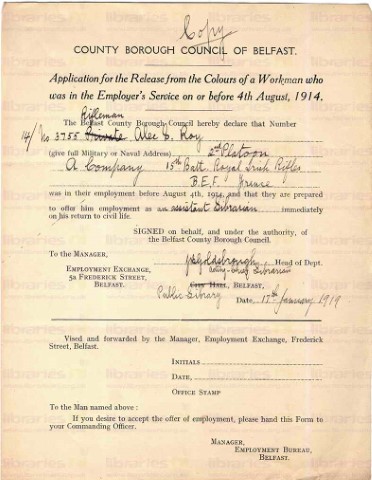 Copy
COUNTY BOROUGH COUNCIL OF BELFAST.
Application for the Release from the Colours of a Workman who
was in the Employer's Service on or before 4th August, 1914.
Rifleman
The Belfast County Borough Council hereby declare that Number
14/ No 3755 Private Alec C. Roy
(give full Military or Naval Address) 2nd Platoon
A Company 15th Batt. Royal Irish Rifles
B.E.F. France
was in their employment before August 4th, 1914, and that they are prepared
to offer him employment as an assistant librarian immediately
on his return to civil life.
SIGNED on behalf, and under the authority, of
the Belfast County Borough Council.
To the MANAGER,
EMPLOYMENT EXCHANGE,
FREDERICK STREET,
BELFAST.
Goldsbrough, Head of Dept.
Acting-Chief Librarian
CITY HALL, BELFAST,
Public Library
Date, 17th January 1919
Vised and forwarded by the Manager, Employment Exchange, Frederick
Street, Belfast.
INITIALS
DATE,
OFFICE STAMP
To the Man named above:
If you desire to accept the offer of employment, please hand this Form to
your Commanding Officer.
MANAGER,
EMPLOYMENT BUREAU,
BELFAST.
libraries